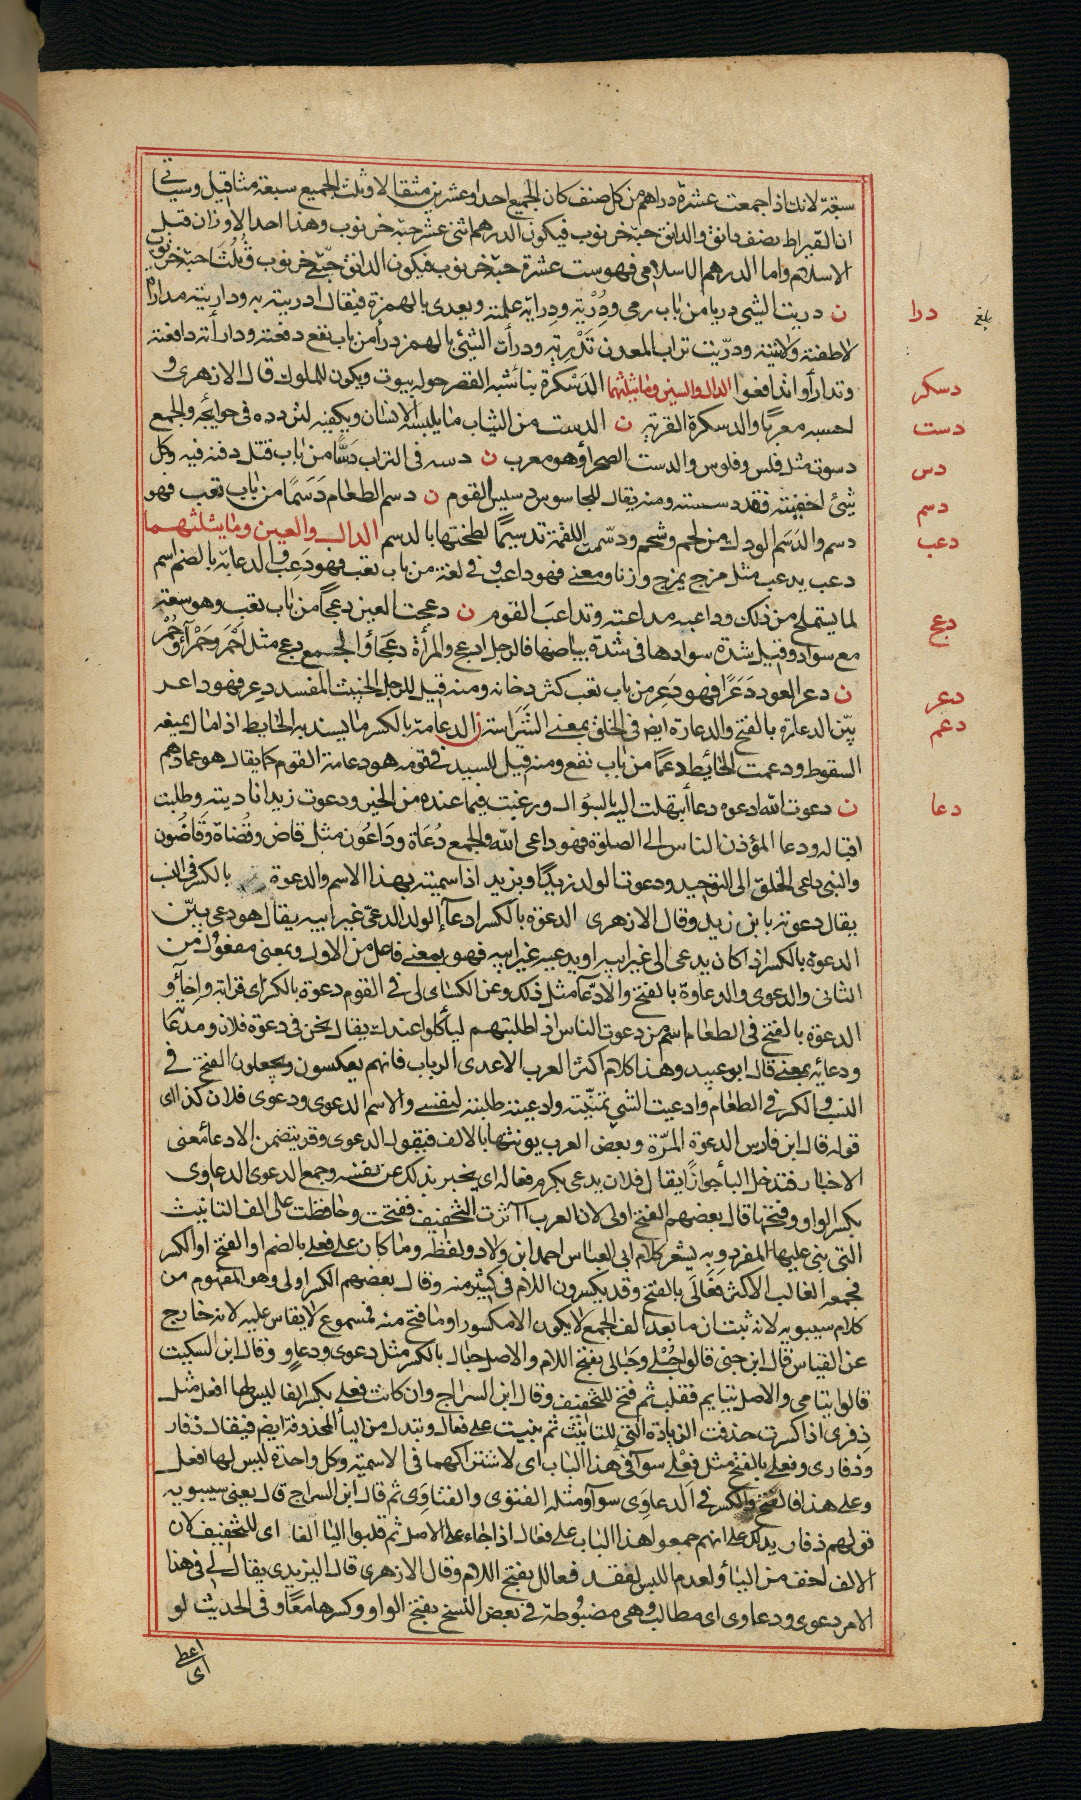 سبعة لانك اذا جمعت عشرة دراهم من كل صنف كان الجميع احدا وعشرين مثقالا وثلث الجميع سبعة مثاقيل وسياتي
ان القيراط نصف دانق والدانق حبة خرنوب فيكون الدرهم اثنى عشر حبة خرنوب وهذا احد الاوزان قبل
الاسلام واما الدرهم الاسلامي فهو ست عشرة حبة خرنوب فيكون الدانق حبتي خرنوب وثلثا حبة خرنوب
ن دريت الشيئ دريا من باب رمى ودرية ودراية علمته ويعدى بالهمزة فيقال ادريته به وداريته مداراة
لاطفته ولاينته ودريت تراب المعدن تدرية ودرأت الشئ بالهمز درأ من باب نفع دفعته ودارأته دافعته
وتدارأوا تدافعوا الدال والسين وما يثلثهما الدسكرة بناء شبه القصر حوله بيوت ويكون للملوك قال الازهرى و
احسبه معربا والدسكرة القرية ن الدست من الثياب ما يلبسه الانسان ويكفيه لتردده فى حوايجه والجمع
دسوت مثل فلس وفلوس والدست الصحراء وهو معرب ن دسه فى التراب دسا من باب قتل دفنه فيه وكل
شيئ اخفيته فقد دسسته ومنه يقال للجاسوس دسيس القوم ن دسم الطعام دسما من باب تعب فهو
دسم والدسم الودك من لحم وشحم ودسمت اللقمة تدسيما لطختها بالدسم الدال والعين وما يثلثهما
دعب يدعب مثل مزح يمزح وزنا ومعنى فهو داعب وفى لغة من باب تعب فهو دعب والدعابة بالضم اسم
لما يستملح من ذلك وداعبه مداعبة وتداعب القوم ن دعجت العين دعجا من باب تعب وهو سعة
مع سواد وقيل شدة سوادها فى شدة بياضها فالرجل ادعج والمرأة دعجاء والجمع دعج مثل احمر وحمراء وحمر
ن دعر العود دعرا فهو دعر من باب تعب كثر دخانه ومنه قيل للرجل الخبيث المفسد دعر فهو داعر
بين الدعارة بالفتح والدعارة ايض فى الخلق بمعنى الشراسة ن الدعامة بالكسر ما يسند به الحايط اذا مال يمنعه
السقوط ودعمت الحائط دعما من باب نفع ومنه قيل للسيد فى قومه هو دعامة القوم كما يقال هو عمادهم
ن دعوت الله ادعوه دعاء ابتهلت اليه بالسؤال ورغبت فيما عنده من الخير ودعوت زيدا ناديته وطلبت
اقباله ودعا المؤذن الناس الى الصلوة فهو داعى الله والجمع دعاة وداعون مثل قاض وقضاة وقاضون
والنبى داعى الخلق الى التوحيد ودعوت الولد زيدا وبزيد اذا سميته بهذا الاسم والدعوة بالكسر فى النسب
يقال دعوته بابن زيد وقال الازهرى الدعوة بالكسر ادعاء الولد الدعى غير ابيه يقال هو دعى بين
الدعوة بالكسر اذا كان يدعى الى غير ابيه او يدعيه غير ابيه فهو بمعنى فاعل من الاول وبمعنى مفعول من
الثانى والدعوى والدعاوة بالفتح والادعاء مثل ذلك وعن الكسائى لى فى القوم دعوة بالكسر اى قرابة واخاء و
الدعوة بالفتح فى الطعام اسم من دعوت الناس اذا طلبتهم ليأكلوا عندك يقال نحن فى دعوة فلان ومدعاته
ودعائه بمعنى قال ابو عبيد وهذا كلام اكثر العرب الا عدى الرباب فانهم يعكسون ويجعلون الفتح فى
النسب والكسر فى الطعام وادعيت الشئ تمنيته وادعيته طلبته لنفسى والاسم الدعوى ودعوى فلان كذا اى
قوله قال ابن فارس الدعوة المرة وبعض العرب يونثها بالالف فيقول الدعوى وقد يتضمن الادعاء معنى
الاخبار فتدخل الباء جوازا يقال فلان يدعى بكرم فعاله اى يخبر بذلك عن نفسه وجمع الدعوى الدعاوى
بكسر الواو وفتحها قال بعضهم الفتح اولى لان العرب آثرت التخفيف ففتحت وحافظت على الف التانيث
التى بنى عليها المفرد وبه يشعر كلام ابى العباس احمد ابن ولاد ولفظه وما كان على فعلى بالضم او الفتح او الكسر
فجمعه الغالب الاكثر فعالى بالفتح وقد يكسرون اللام فى كثير منه وقال بعضهم الكسر اولى وهو المفهوم من
كلام سيبويه لانه ثبت ان ما بعد الف الجمع لا يكون الا مكسورا وما فتح منه فمسموع لا يقاس عليه لانه خارج
عن القياس قال ابن جنى قالوا حبلى وحبالى بفتح اللام والاصل حبال بالكسر مثل دعوى ودعاو وقال ابن السكيت
قالوا يتامى والاصل يتايم فقلب ثم فتح للتخفيف وقال ابن السراج وان كانت فعلى بكسر الفا ليس لها افعل مثل
ذفرى اذا كسرت حذفت الزيادة التى للتانيث ثم بنيت على فعال وتبدل من الياء المحذوفة ايض فيقال ذفار
وذفارى وفعلى بالفتح مثل فعلى سواء فى هذا الباب اى لاشتراكهما فى الاسمية وكل واحدة ليس لها افعل
وعلى هذا فالفتح والكسر فى الدعاوى سواء ومثله الفتوى والفتاوى ثم قال ابن السراج قال يعنى سيبويه
قولهم ذفار يدلك على انهم جمعوا هذا الباب على فعال اذ جاء على الاصل ثم قلبوا اليا الفا اى للتخفيف لان
الالف اخف من الياء ولعدم اللبس لفقد فعالل بفتح اللام وقال الازهرى قال اليزيدى يقال لى فى هذا
الامر دعوى ودعاوى اى مطالب وهى مضبوطة فى بعض النسخ بفتح الواو وكسرها معا وفى الحديث لو
اعطى
درا
بلغ
دسكر
دست
دس
دسم
دعب
دعج
دعر
دعم
دعا